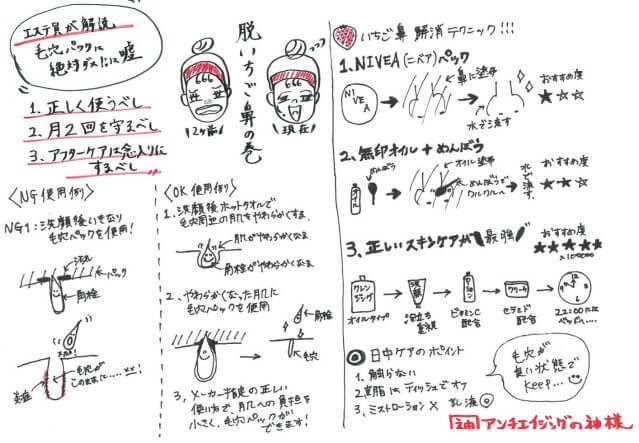 エステ員が解説
毛穴パックは
絶対ダメには嘘
1. 正しく使うべし
2. 月2回を守るべし
3. アフターケアは念入りに
するべし
脱いちご鼻の巻
666
666
12ヶ前
現在
〈NG使用例〉
NG1:洗顔後いきなり
毛穴パックを使用!
汚れ
パック
角栓
炎症
毛穴が
このままに.....××!
〈OK使用例〉
1. 洗顔後ホットタオルで
毛穴周辺の肌をやわらかくする
肌がやわらかくなる
角栓がやわらかくなる
2、やわらかくなった肌に
毛穴パックを使用
角栓
毛穴
3、メーカー指定の正しい
使い方で、肌への負担を
小さく、毛穴パックが
できます!
いちご鼻 解消テクニック!!!
1. NIVEA(ニベア)パック
NIVEA
鼻に塗布
水で流す
おすすめ度
★☆☆
2、無印オイル + めんぼう
オイル
オイル塗布
めんぼうで
クルクルへ
水で流す
おすすめ度
★☆☆
3、正しいスキンケアが最強
おすすめ度
★★★★★
×100000
クレンジング
オイルタイプ
洗顔
泡立ち
重視
ビタミンC
配合
クリーム
セラミド
配合
22:00だに
日中ケアのポイント
1. 触らない
2. 皮脂はティッシュでオフ
3、ミストローション× 乳液◎
毛穴が
良い状態で
keep...
アンチエイジングの神様